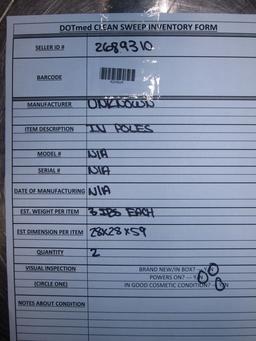 DOTmed CLEAN SWEEP INVENTORY FORM
SELLER ID # 2689310
BARCODE
MANUFACTURER UNKNOWN
ITEM DESCRIPTION IV POLES
MODEL # N/A
SERIAL # N/A
DATE OF MANUFACTURING N/A
EST. WEIGHT PER ITEM 3 LBS EACH
EST DIMENSION PER ITEM 28X28X59
QUANTITY 2
VISUAL INSPECTION BRAND NEW/IN BOX? --- Y/N
POWERS ON? --- Y/N
(CIRCLE ONE) IN GOOD COSMETIC CONDITION? --- Y/N
NOTES ABOUT CONDITION